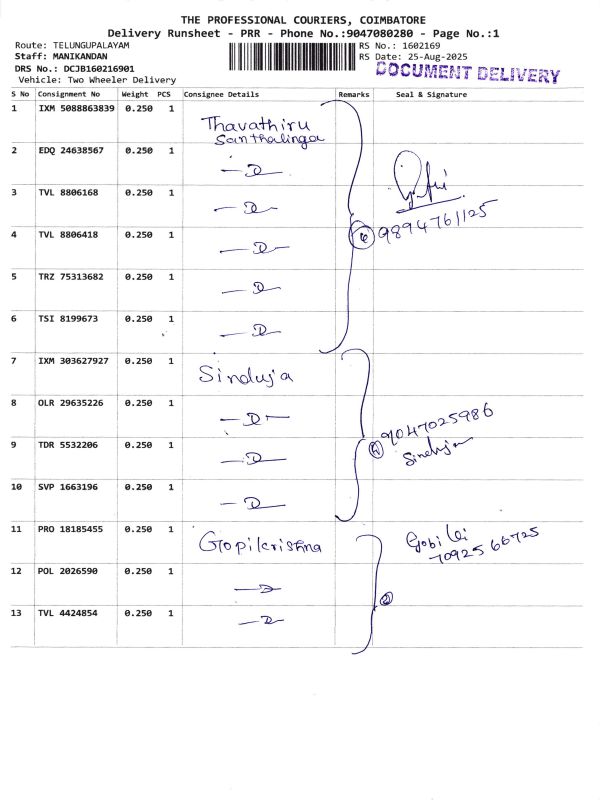 THE PROFESSIONAL COURIERS, COIMBATORE
Delivery Runsheet - PRR - Phone No.:9047080280 - Page No.:1
Route: TELUNGUPALAYAM
Staff: MANIKANDAN
DRS No.: DCJB160216901
Vehicle: Two Wheeler Delivery
RS No.: 1602169
RS Date: 25-Aug-2025
DOCUMENT DELIVERY
S No Consignment No Weight PCS Consignee Details Remarks Seal & Signature
1 IXM 5088863839 0.250 1 Thavathiru
Santhalinga
2 EDQ 24638567 0.250 1 —D—
3 TVL 8806168 0.250 1 —D—
4 TVL 8806418 0.250 1 —D— 6 9894761125
5 TRZ 75313682 0.250 1 —D—
6 TSI 8199673 0.250 1 —D—
7 IXM 303627927 0.250 1 Sinduja
8 OLR 29635226 0.250 1 —D—
9 TDR 5532206 0.250 1 —D— 4 9047025986
Sinduja
10 SVP 1663196 0.250 1 —D—
11 PRO 18185455 0.250 1 Gopikrishna Gobi
70925 66725
12 POL 2026590 0.250 1 —D—
13 TVL 4424854 0.250 1 —D—